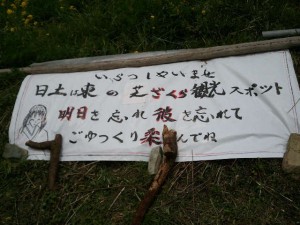 いらっしゃいませ
日土は東の芝ざくら観光スポット
明日を忘れ を忘れて
ごゆっくり楽んでね